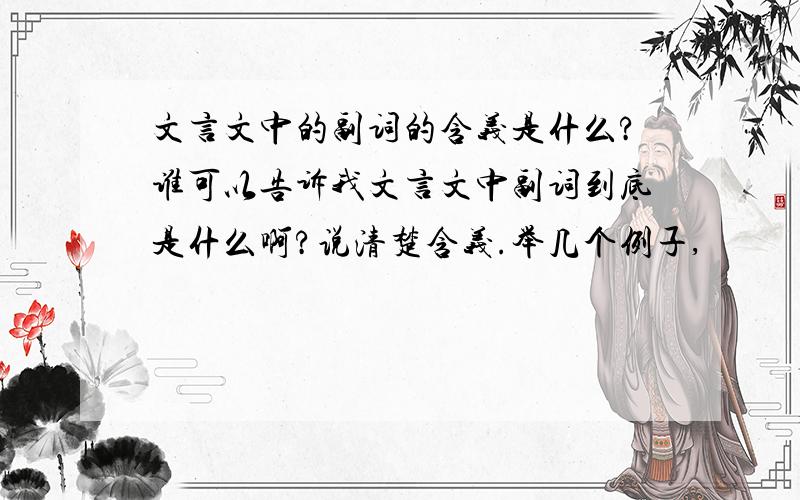 文言文中的副词的含义是什么?
谁可以告诉我文言文中副词到底
是什么啊?说清楚含义.举几个例子,